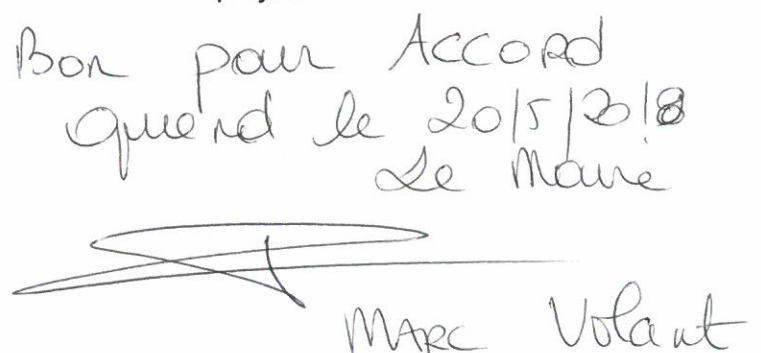 Bon pour Accord
Quend le 20/5/2018
Le Maire
MARC Volant